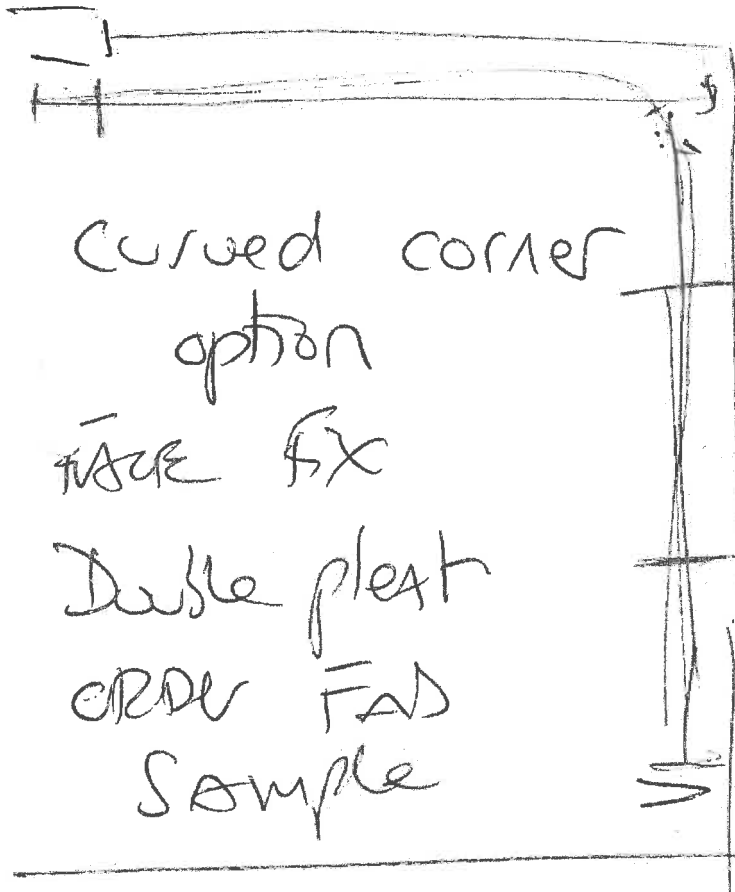 Curved corner
option
FACE FIX
Double pleat
ORDER FAB
SAMPLE